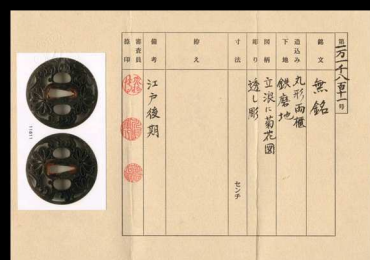 第一万一千八百十一号
銘文 無銘
造込み 丸形両櫃
下地 鉄磨地
図柄 立浪に菊花図
彫り 透し彫
寸法 センチ
拵え
備考 江戸後期
審査員
路印
11811